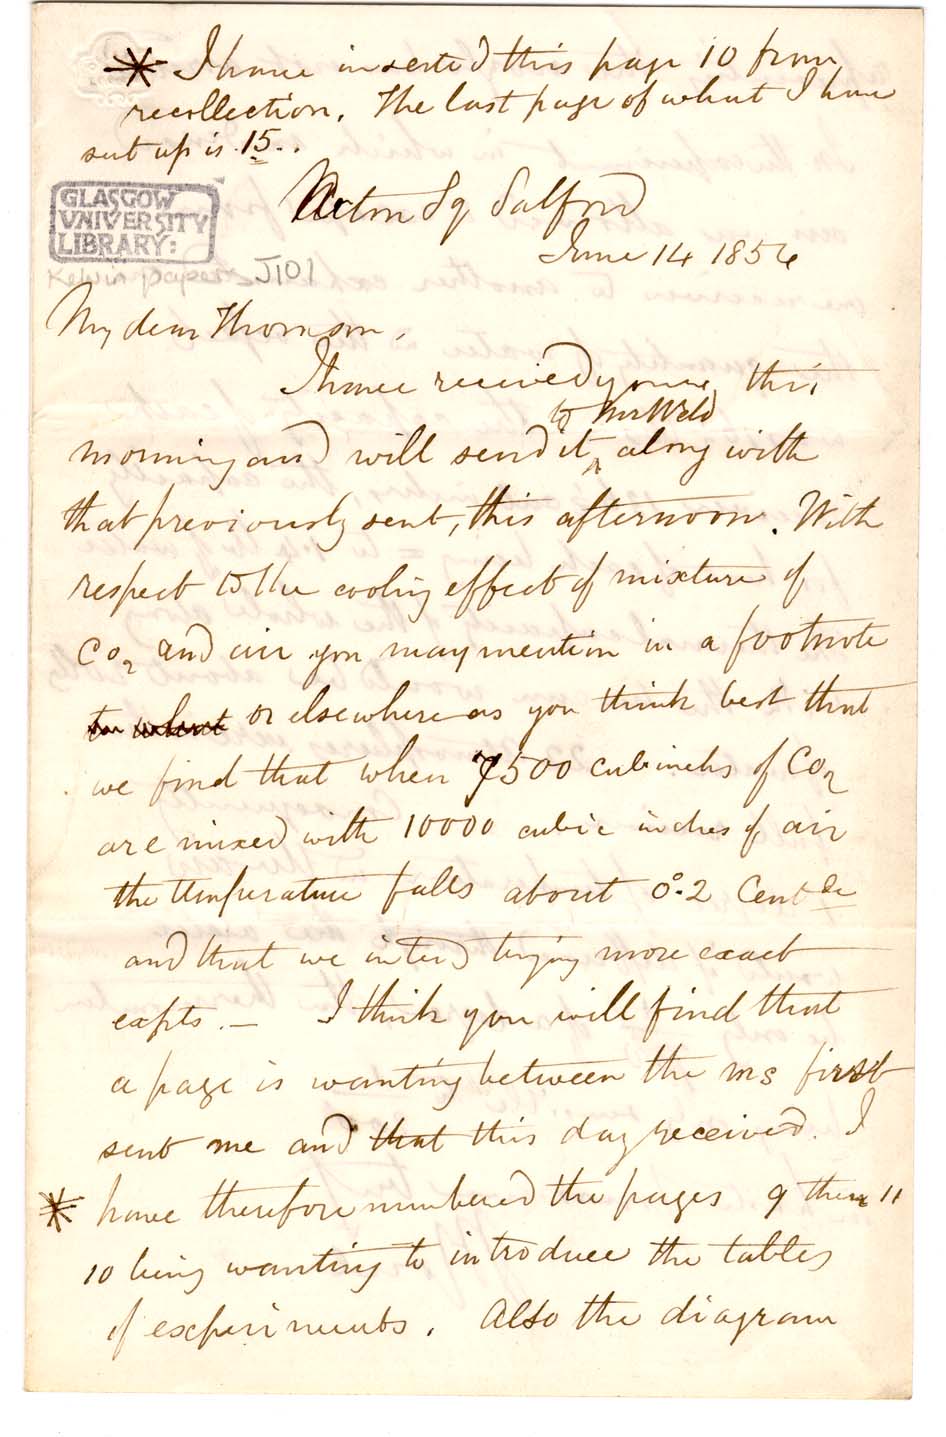 * I have inserted this page 10 from
recollection. The last page of what I have
sent up is 15..
GLASGOW
UNIVERSITY
LIBRARY:
Kelvin papers J101
Acton Sq Salford
June 14 1854
My dear Thomson,
I have received yours this
to Mr Weld
morning and will send it ^ along with
that previously sent, this afternoon. With
respect to the cooling effect of mixture of
CO2 and air you may mention in a footnote
to what or elsewhere as you think best that
we find that when 7500 cub inchs of CO2
are mixed with 10000 cubic inches of air
the temperature falls about 0°.2 Centde
and that we intend trying more exact
expts. — I think you will find that
a page is wanting between the ms first
sent me and that this day received. I
* have therefore numbered the pages 9 then 11
10 being wanting to introduce the tables
of experiments. Also the diagram